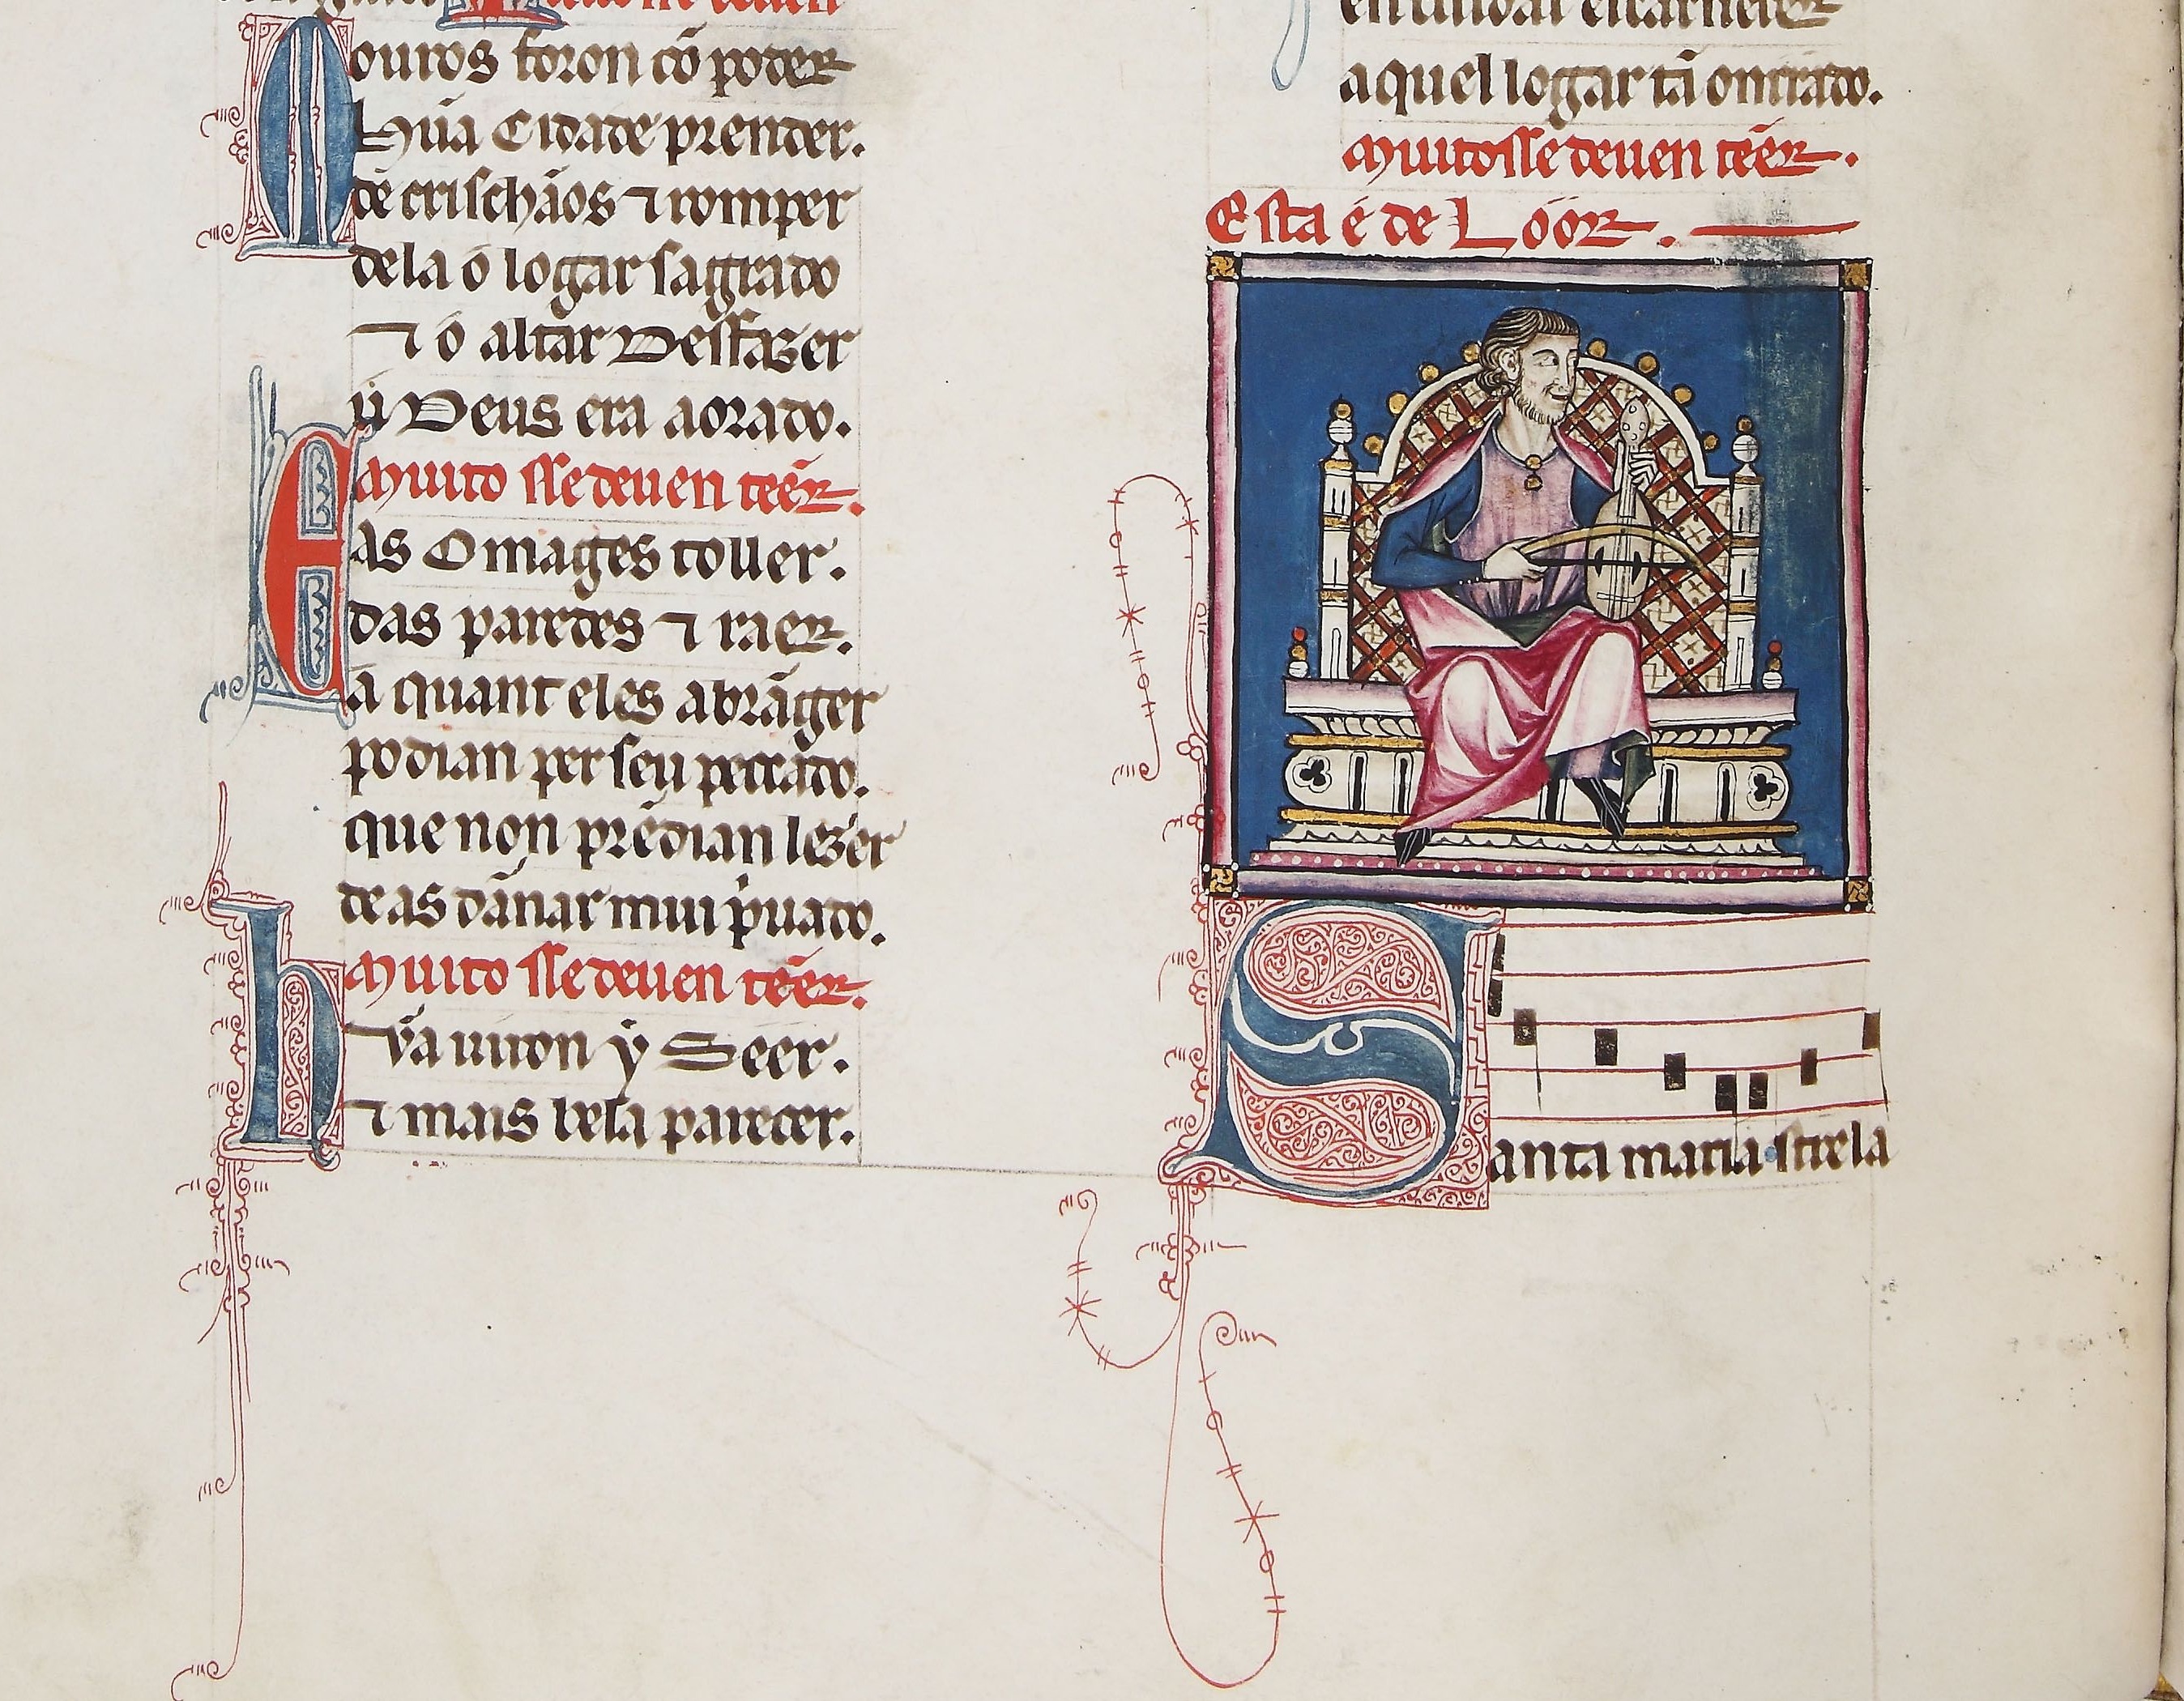 Mouros foron cõ poder
hũa Cidade prender.
de crischãos ⁊ romper
dela o logar sagrado
⁊ o altar Desfazer
ú Deus era aorado.
Muito sse deuen tẽer.
E as Omages toller.
das paredes ⁊ raer.
a quant eles abrãger
podian per seu peccado.
que non prẽdian lezer
de as dãnar mui p̃uado.
Muito sse deuen tẽer.
hũa uiron ý Seer.
⁊ mais bela parecer.
en tiudal escarneçer
a quel logar tã onrrado.
Muito sse deuen tẽer.
Esta é de Lóór.
Santa maria strela